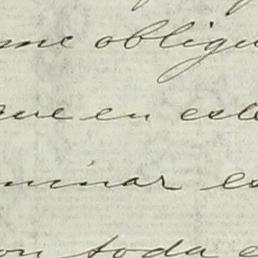 me obligu
que en este
minar es
on toda e